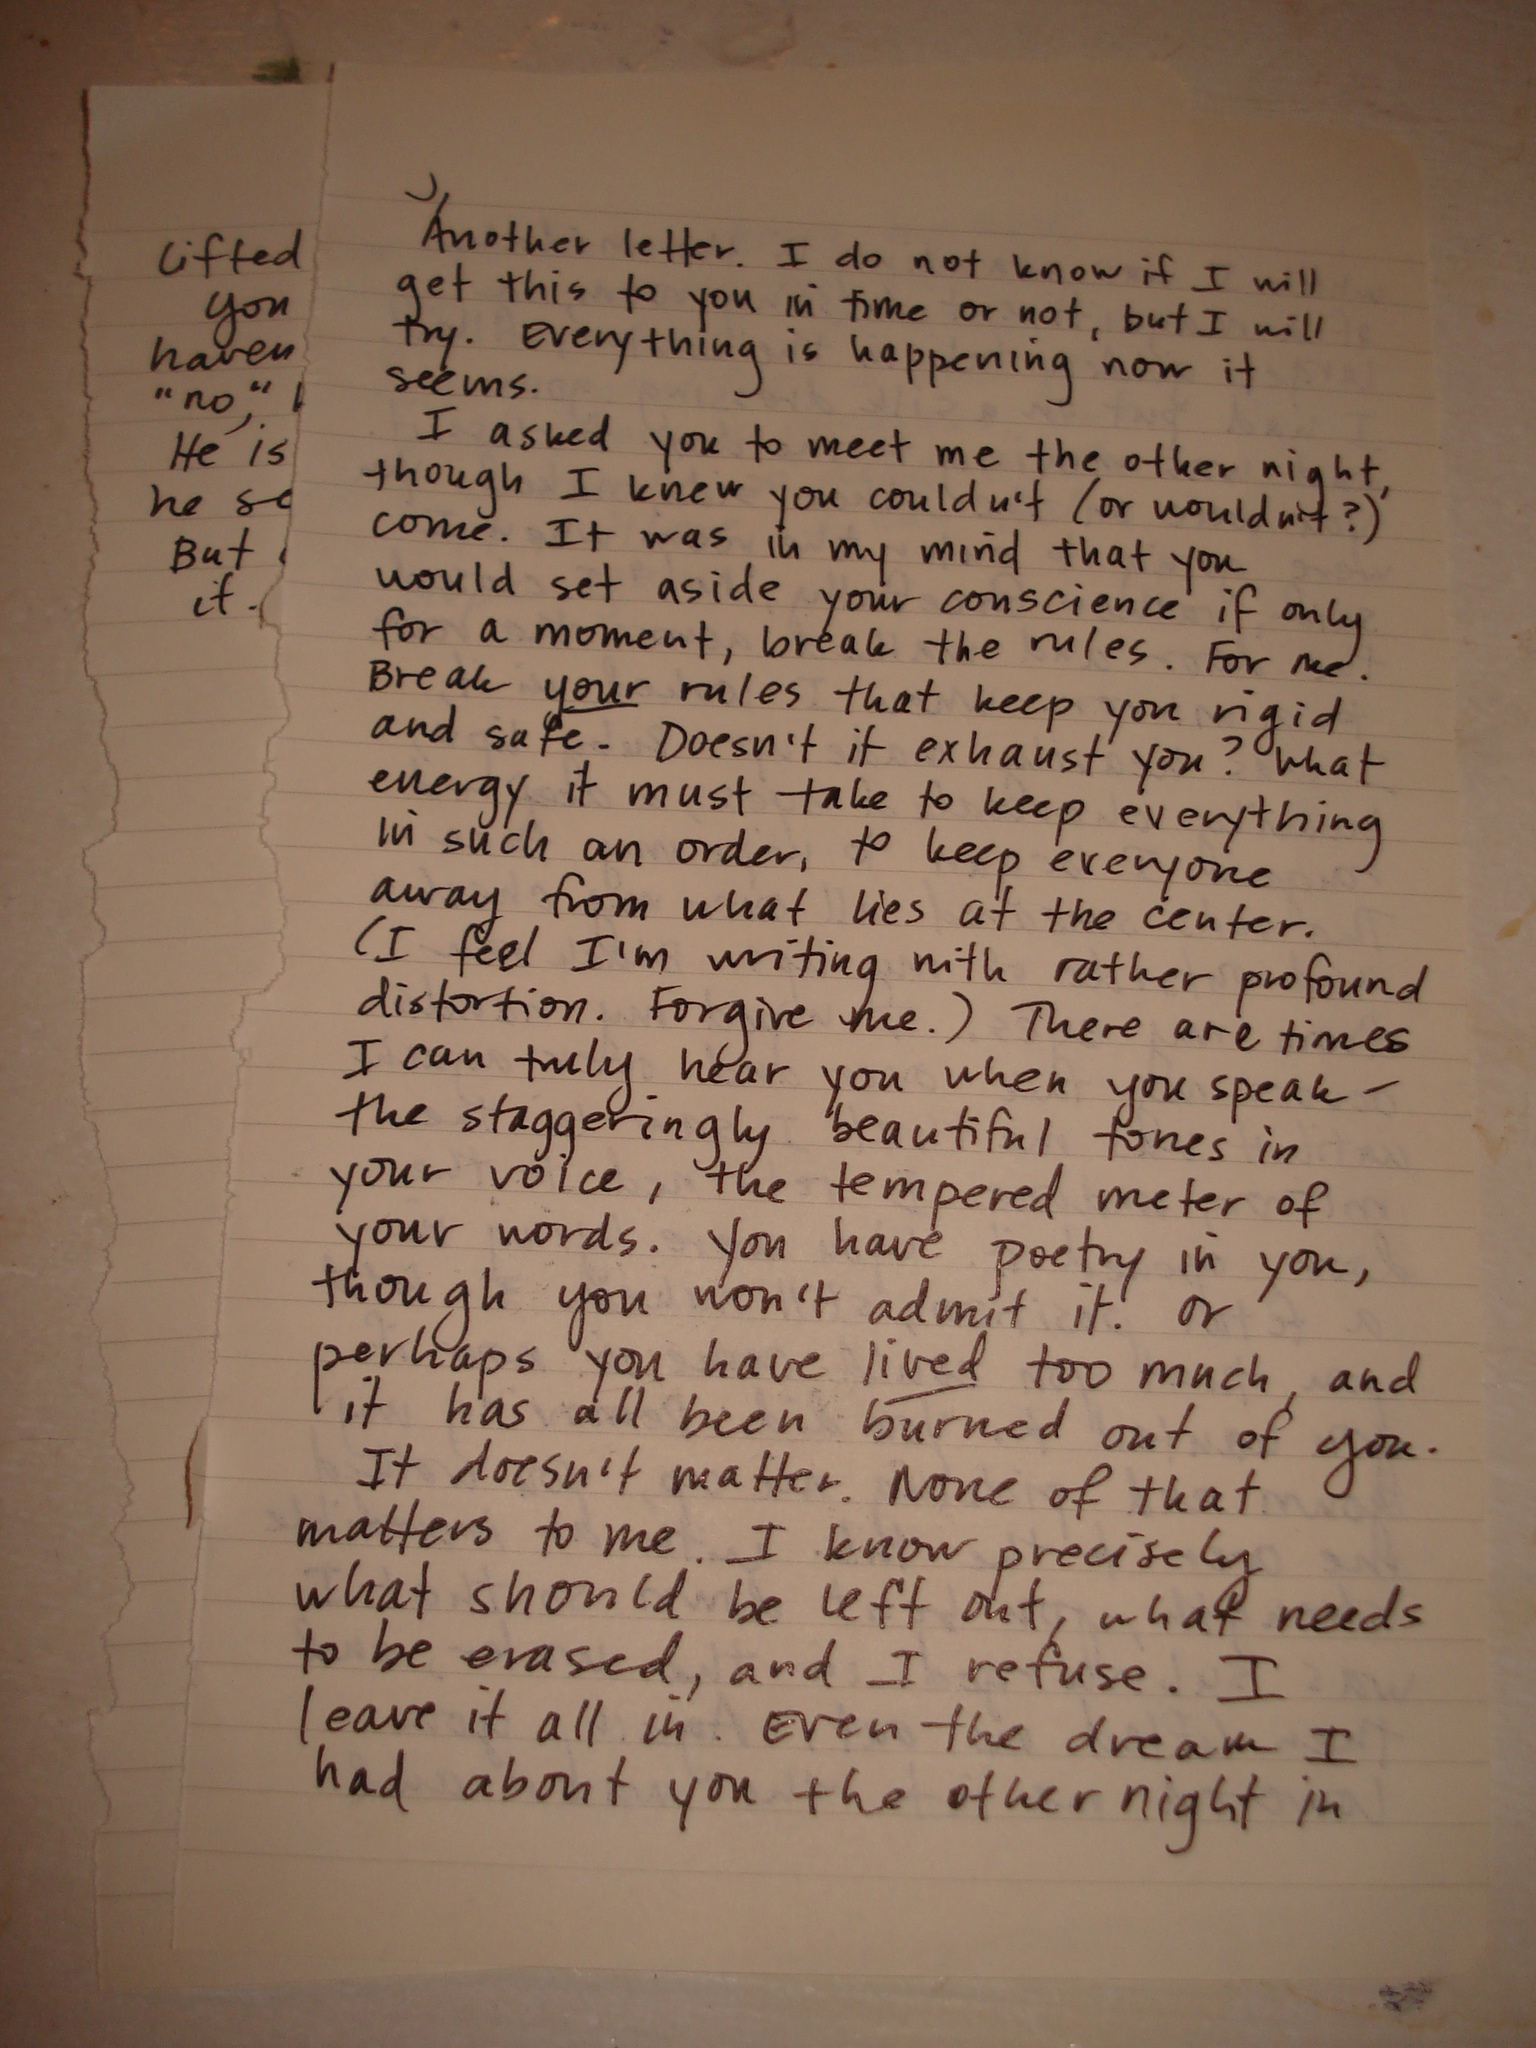 Lifted
you
haven
"no,"
He is
he se
But
it.
Another letter. I do not know if I will
get this to you in time or not, but I will
try. Everything is happening now it
seems.
I asked you to meet me the other night,
though I knew you couldn't (or wouldn't?)
come. It was in my mind that you
would set aside your conscience if only
for a moment, break the rules. For me.
Break your rules that keep you rigid
and safe. Doesn't it exhaust you? What
energy it must take to keep everything
in such an order, to keep everyone
away from what lies at the center.
(I feel I'm writing with rather profound
distortion. Forgive me.) There are times
I can truly hear you when you speak -
the staggeringly beautiful tones in
your voice, the tempered meter of
your words. You have poetry in you,
though you won't admit it. Or
perhaps you have lived too much, and
it has all been burned out of you.
It doesn't matter. None of that
matters to me. I know precisely
what should be left out, what needs
to be erased, and I refuse. I
leave it all in. Even the dream I
had about you the other night in